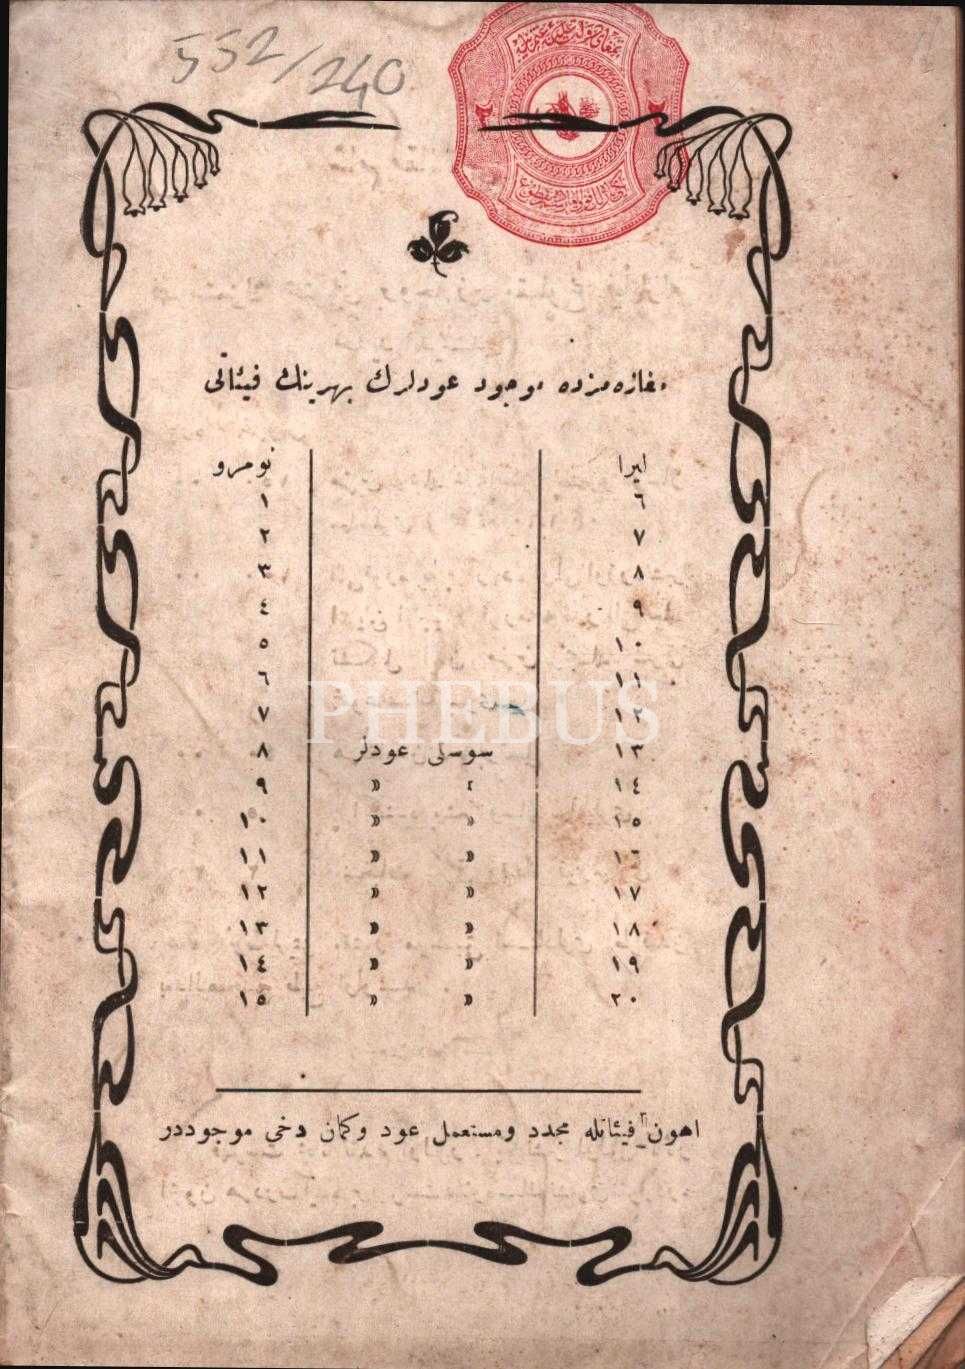 552/240
مغازه‌مزده موجود عودلرك بهرينك فيئاتى
ليرا نومرو
٦ ١
٧ ٢
٨ ٣
٩ ٤
١٠ ٥
١١ ٦
١٢ ٧
١٣ سوسلى عودلر ٨
١٤ » » ٩
١٥ » » ١٠
١٦ » » ١١
١٧ » » ١٢
١٨ » » ١٣
١٩ » » ١٤
٢٠ » » ١٥
اهون فيئاتله مجدد ومستعمل عود وكمان دخى موجوددر
PHEBUS